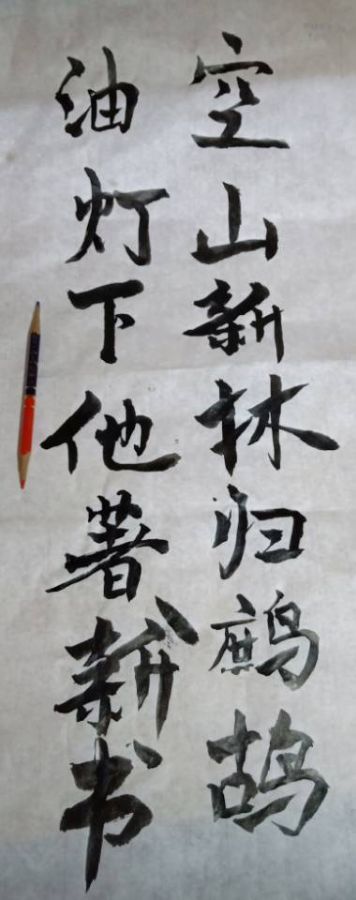 空山新林归鹧鸪
油灯下他著新书